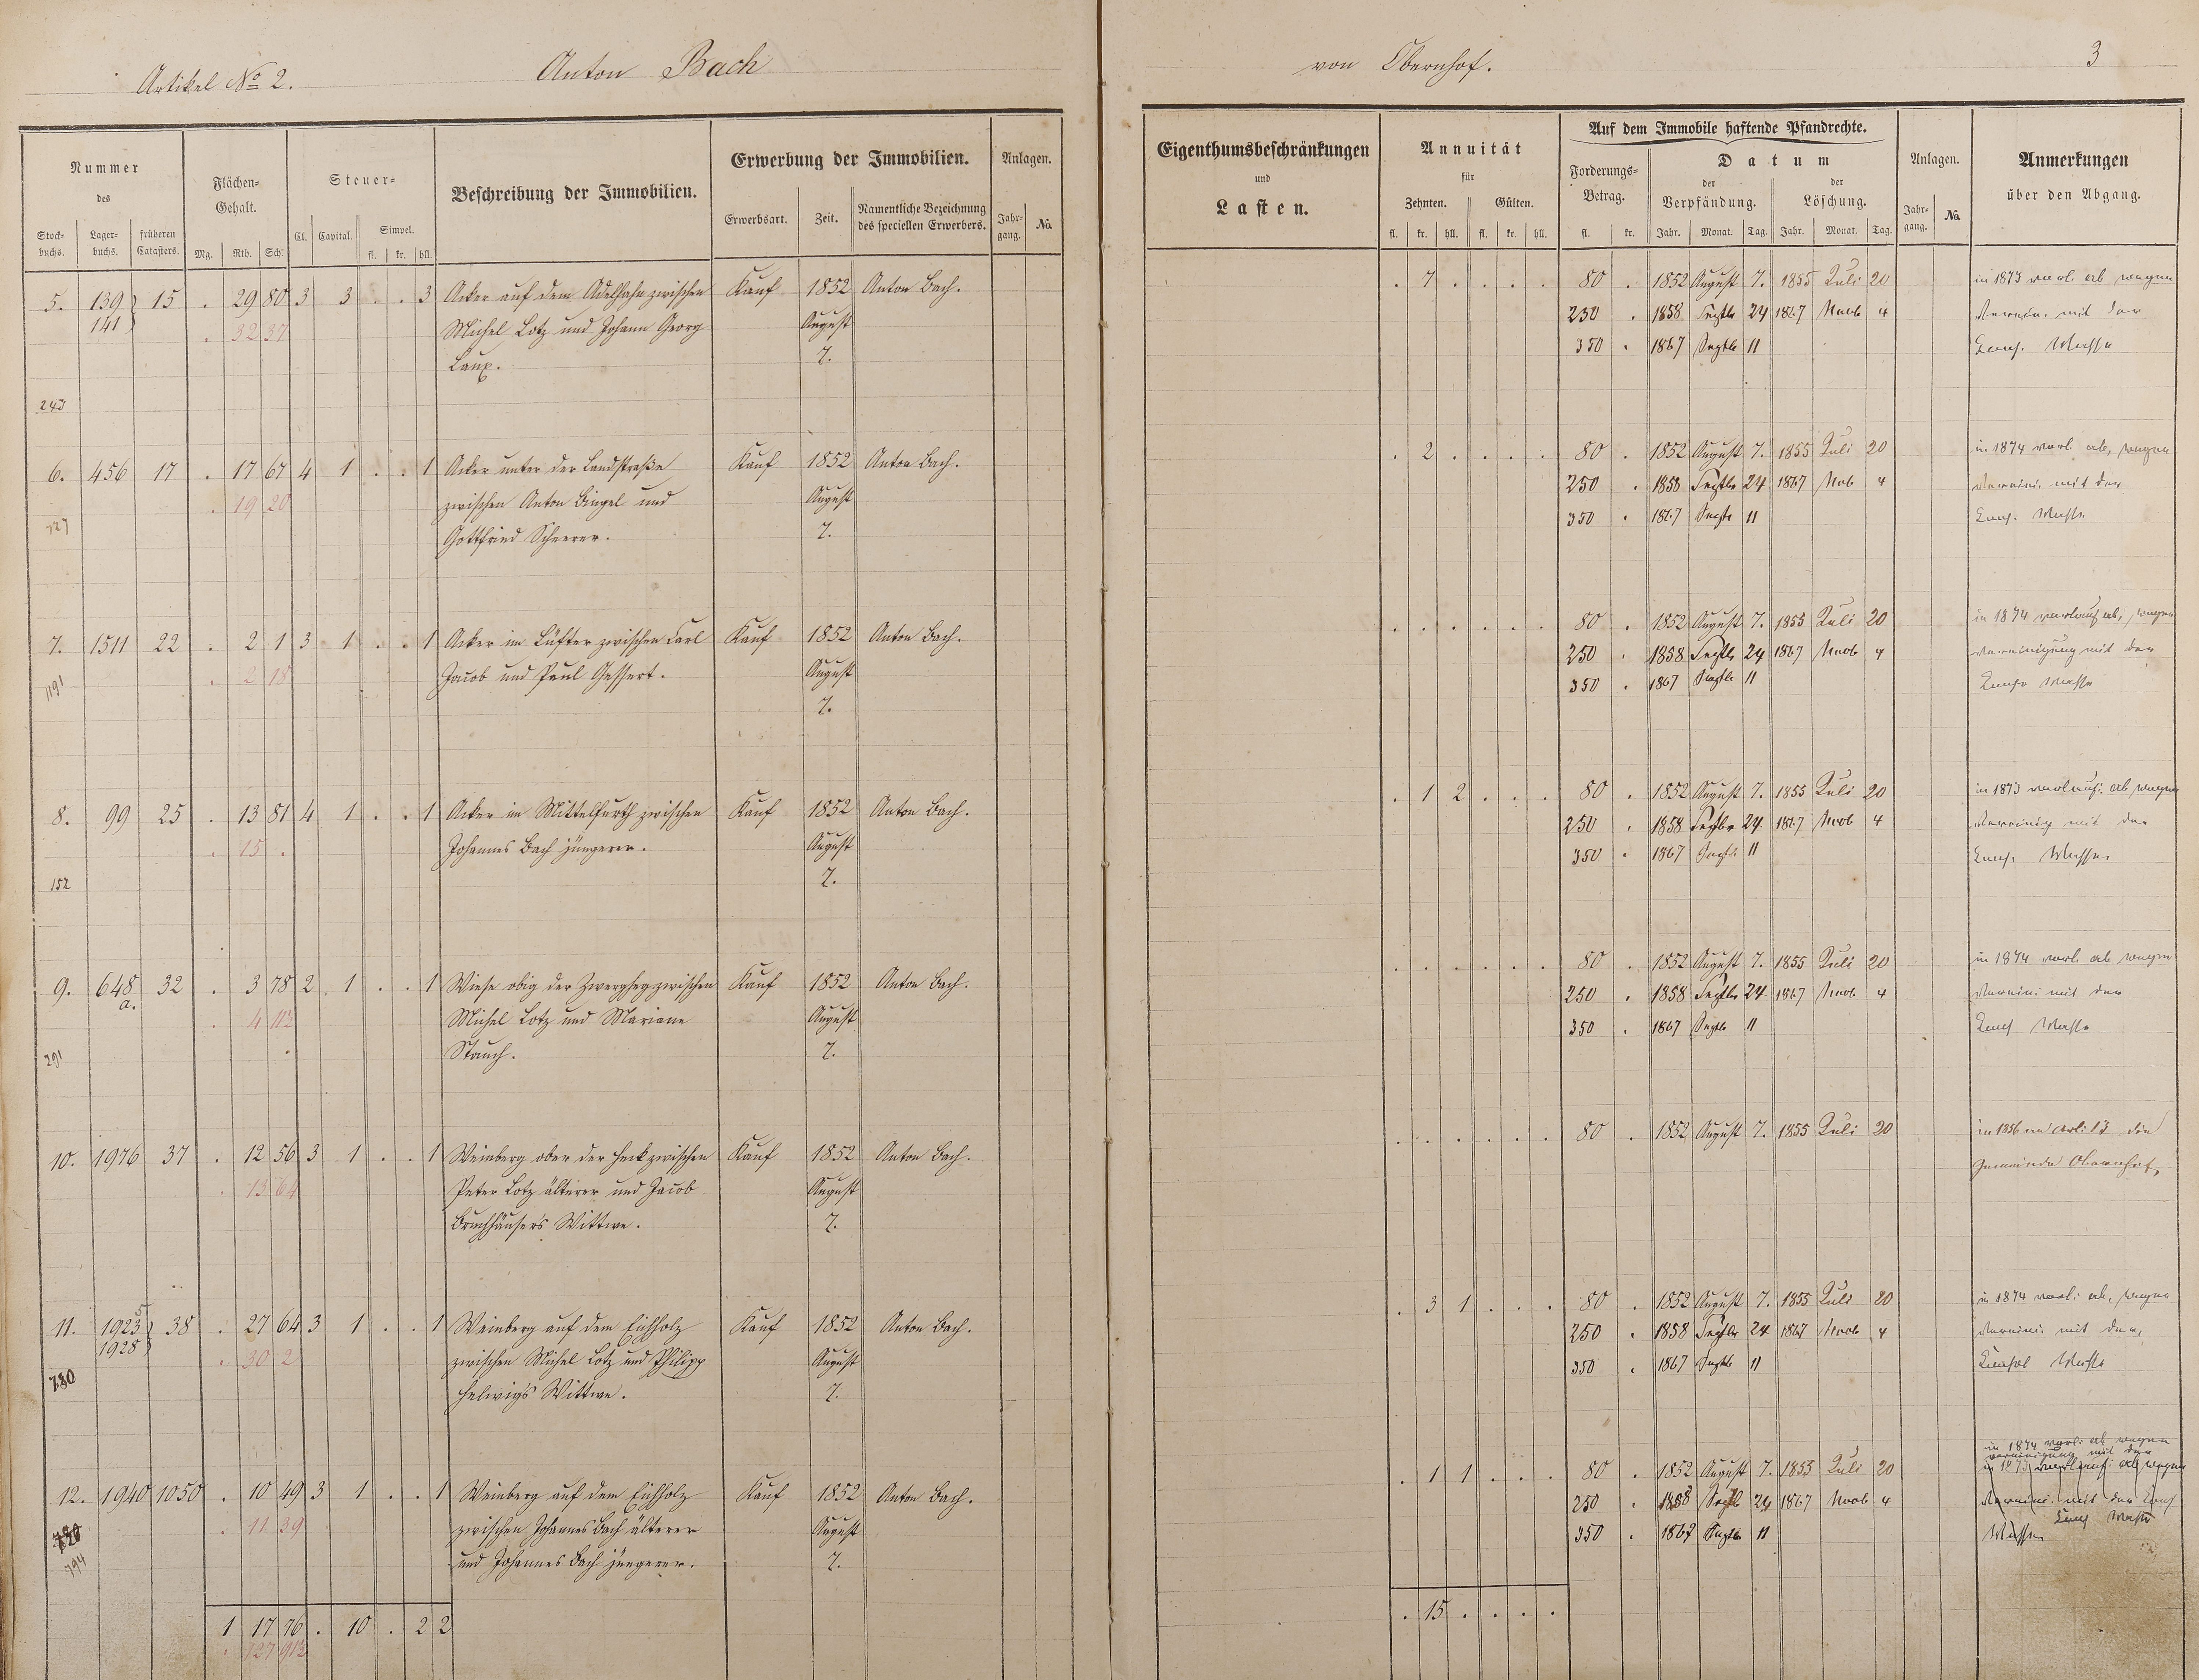 Artikel No 2. Anton Bach von Obernhof. 3
Nummer des
Stock-buchs. Lager-buchs. früheren Catasters.
Flächen-Gehalt.
Mg. Rth. Sch.
Steuer-
Cl. Capital. Simpel.
fl. kr. hll.
Beschreibung der Immobilien.
Erwerbung der Immobilien.
Erwerbsart. Zeit. Namentliche Bezeichnung des speciellen Erwerbers.
Anlagen.
Jahr-gang. No.
Eigenthumsbeschränkungen
und
Lasten.
Annuität
für
Zehnten. Gülten.
fl. kr. hll. fl. kr. hll.
Auf dem Immobile haftende Pfandrechte.
Forderungs-Betrag.
fl. kr.
Datum
der Verpfändung. der Löschung.
Jahr. Monat. Tag. Jahr. Monat. Tag.
Anlagen.
Jahr-gang. No.
Anmerkungen
über den Abgang.
5. 139 15 . 29 80 3 3 . . 3 Acker auf dem Adelhahn zwischen Kauf 1852 Anton Bach. . 7 . . . . 80 . 1852 August 7. 1855 Juli 20 in 1873 ab wegen
141 . 32 37 Michel Lotz und Johann Georg August 250 . 1858 Septbr 24 1867 Novb 4 mit der
Laux. 7. 350 . 1867 Septb 11 Masse
243
6. 456 17 . 17 67 4 1 . . 1 Acker unter der Landstraße Kauf 1852 Anton Bach. . 2 . . . . 80 . 1852 August 7. 1855 Juli 20 in 1874 ab, wegen
. 19 20 zwischen Anton Bingel und August 250 . 1858 Septbr 24 1867 Nob 4 mit der
Gottfried Scheerer. 7. 350 . 1867 Septb 11 Masse
7. 1511 22 . 2 1 3 1 . . 1 Acker im Lüfter zwischen Carl Kauf 1852 Anton Bach. . . . . . . 80 . 1852 August 7. 1855 Juli 20 in 1874 ab, wegen
. 2 18 Jacob und Paul Gessert. August 250 . 1858 Septbr 24 1867 Novb 4 Vereinigung mit der
1191 7. 350 . 1867 Septb 11 Masse
8. 99 25 . 13 81 4 1 . . 1 Acker im Mittelfurth zwischen Kauf 1852 Anton Bach. . 1 2 . . . 80 . 1852 August 7. 1855 Juli 20 in 1873 ab wegen
. 15 . Johannes Bach jüngerer. August 250 . 1858 Septbr 24 1867 Novb 4 mit der
152 7. 350 . 1867 Septb 11 Masse
9. 648 32 . 3 78 2 1 . . 1 Wiese obig der zwischen Kauf 1852 Anton Bach. . . . . . . 80 . 1852 August 7. 1855 Juli 20 in 1874 ab wegen
a. . 4 11½ Michel Lotz und Mariane August 250 . 1858 Septbr 24 1867 Novb 4 mit der
291 Stauch. 7. 350 . 1867 Septb 11 Masse
10. 1976 37 . 12 56 3 1 . . 1 Weinberg ober der Heck zwischen Kauf 1852 Anton Bach. . . . . . . 80 . 1852 August 7. 1855 Juli 20 in 1856 an die
. 13 64 Peter Lotz älterer und Jacob August Gemeinde Obernhof,
Bruchhäusers Wittwe. 7.
11. 1925 38 . 27 64 3 1 . . 1 Weinberg auf dem Eichholz Kauf 1852 Anton Bach. . 3 1 . . . 80 . 1852 August 7. 1855 Juli 20 in 1874 ab, wegen
1928 . 30 2 zwischen Michel Lotz und Philipp August 250 . 1858 Septbr 24 1867 Novb 4 mit der
780 Helwigs Wittwe. 7. 350 . 1867 Septb 11 Masse
in 1874 ab wegen
Vereinigung mit der
12. 1940 1050 . 10 49 3 1 . . 1 Weinberg auf dem Eichholz Kauf 1852 Anton Bach. . 1 1 . . . 80 . 1852 August 7. 1855 Juli 20 in 1873 ab wegen
. 11 39 zwischen Johannes Bach älterer August 250 . 1858 Septb 24 1867 Novb 4 mit der
794 und Johannes Bach jüngerer. 7. 350 . 1867 Septb 11 Masse
1 17 76 . 10 . 2 2 . 15 . . . .
. 127 91½